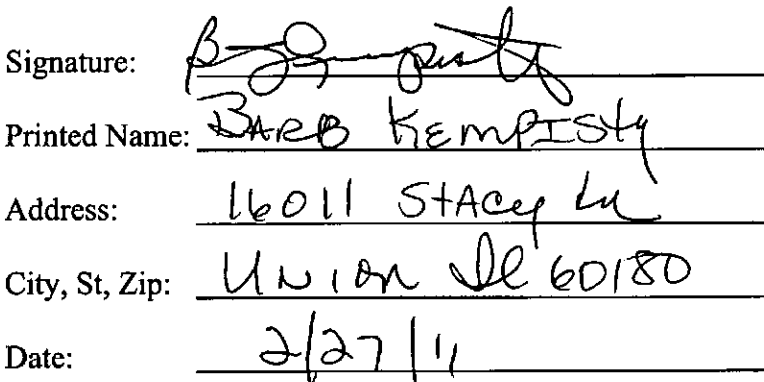 Signature:
Printed Name: BARB KEMPISty
Address: 16011 StAcey Ln
City, St, Zip: UNION Il 60180
Date: 2/27/11